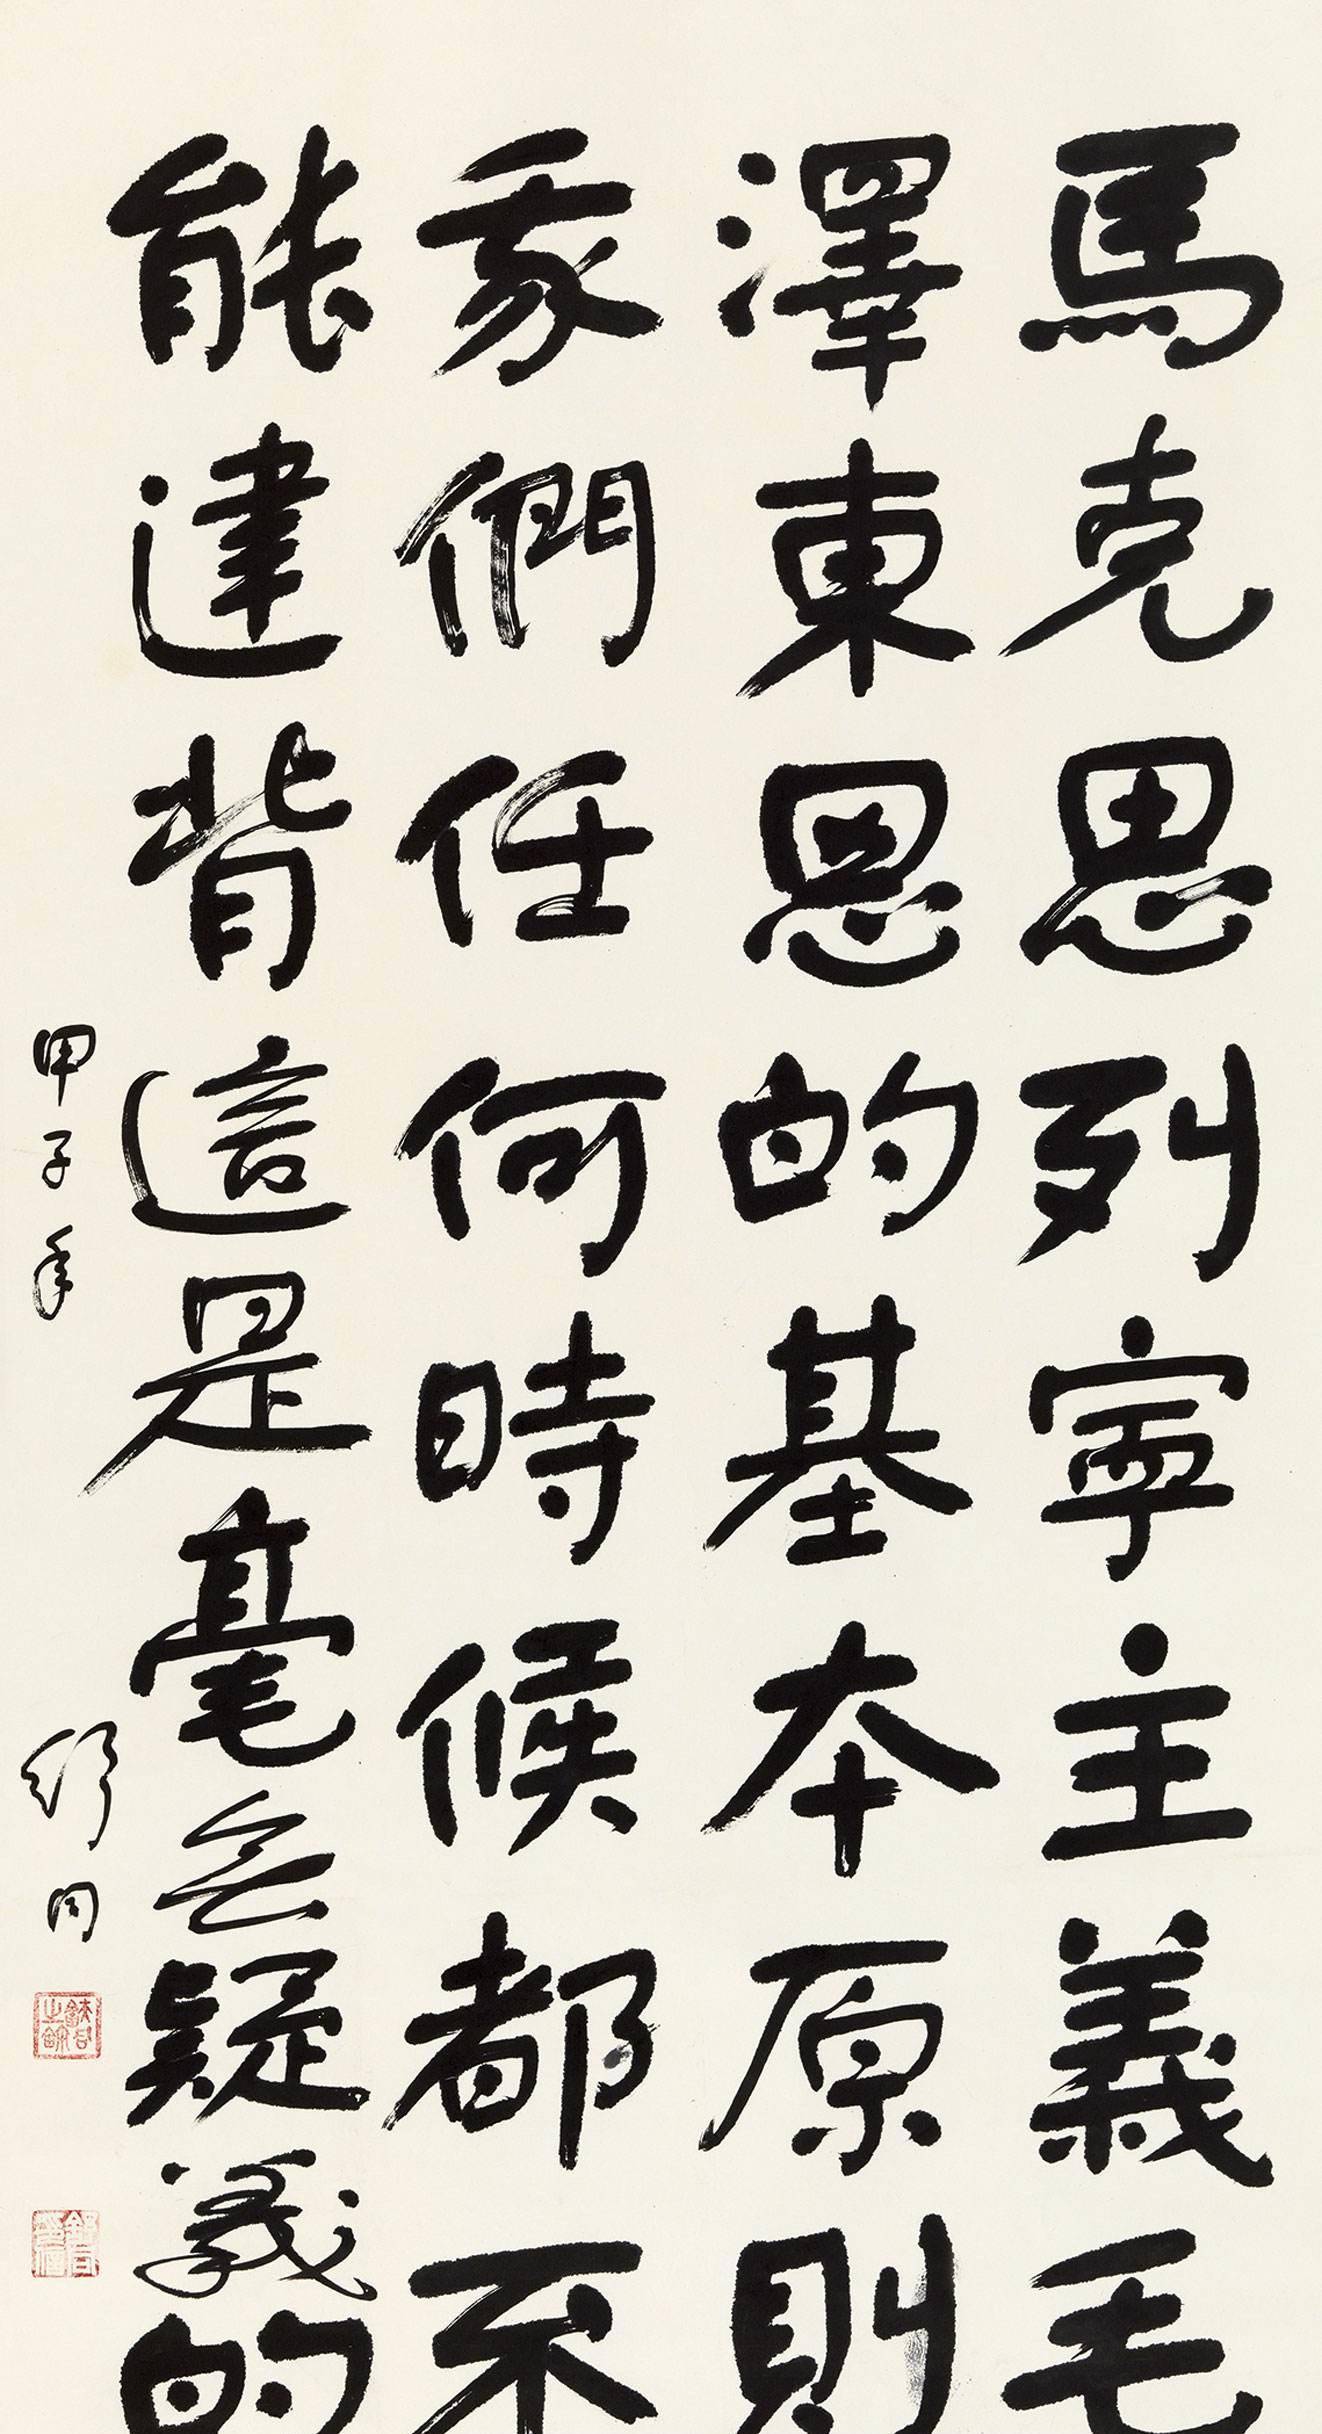 馬克思列寧主義毛
澤東思的基本原則
我們任何時候都不
能違背這是毫無疑義的
甲子年
舒同